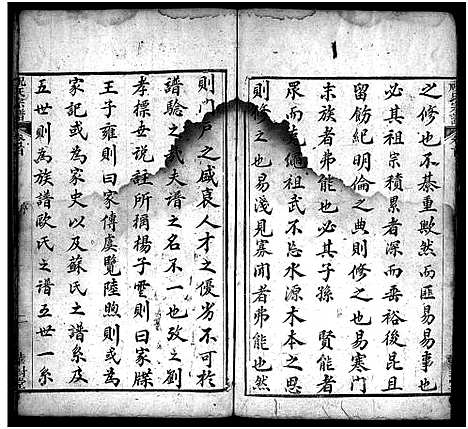 之修也不綦重歟然而匪易易事也
必其祖宗積累者深而垂裕後昆且
留飭紀明倫之典則修之也易寒門
末族者弗能也必其子孫 賢能者
眾而克繩祖武不忘水源木本之思
則修之也易淺見寡聞者弗能也然
則門戶之盛衰人才之優劣不可於
譜驗之哉夫譜之名不一也攷之劉
孝標世說註所稱楊子雲則曰家牒
王子雍則曰家傳虞覽陸煦則或曰
家記或為家史以及蘇氏之譜系及
五世則為族譜歐氏之譜五世一系